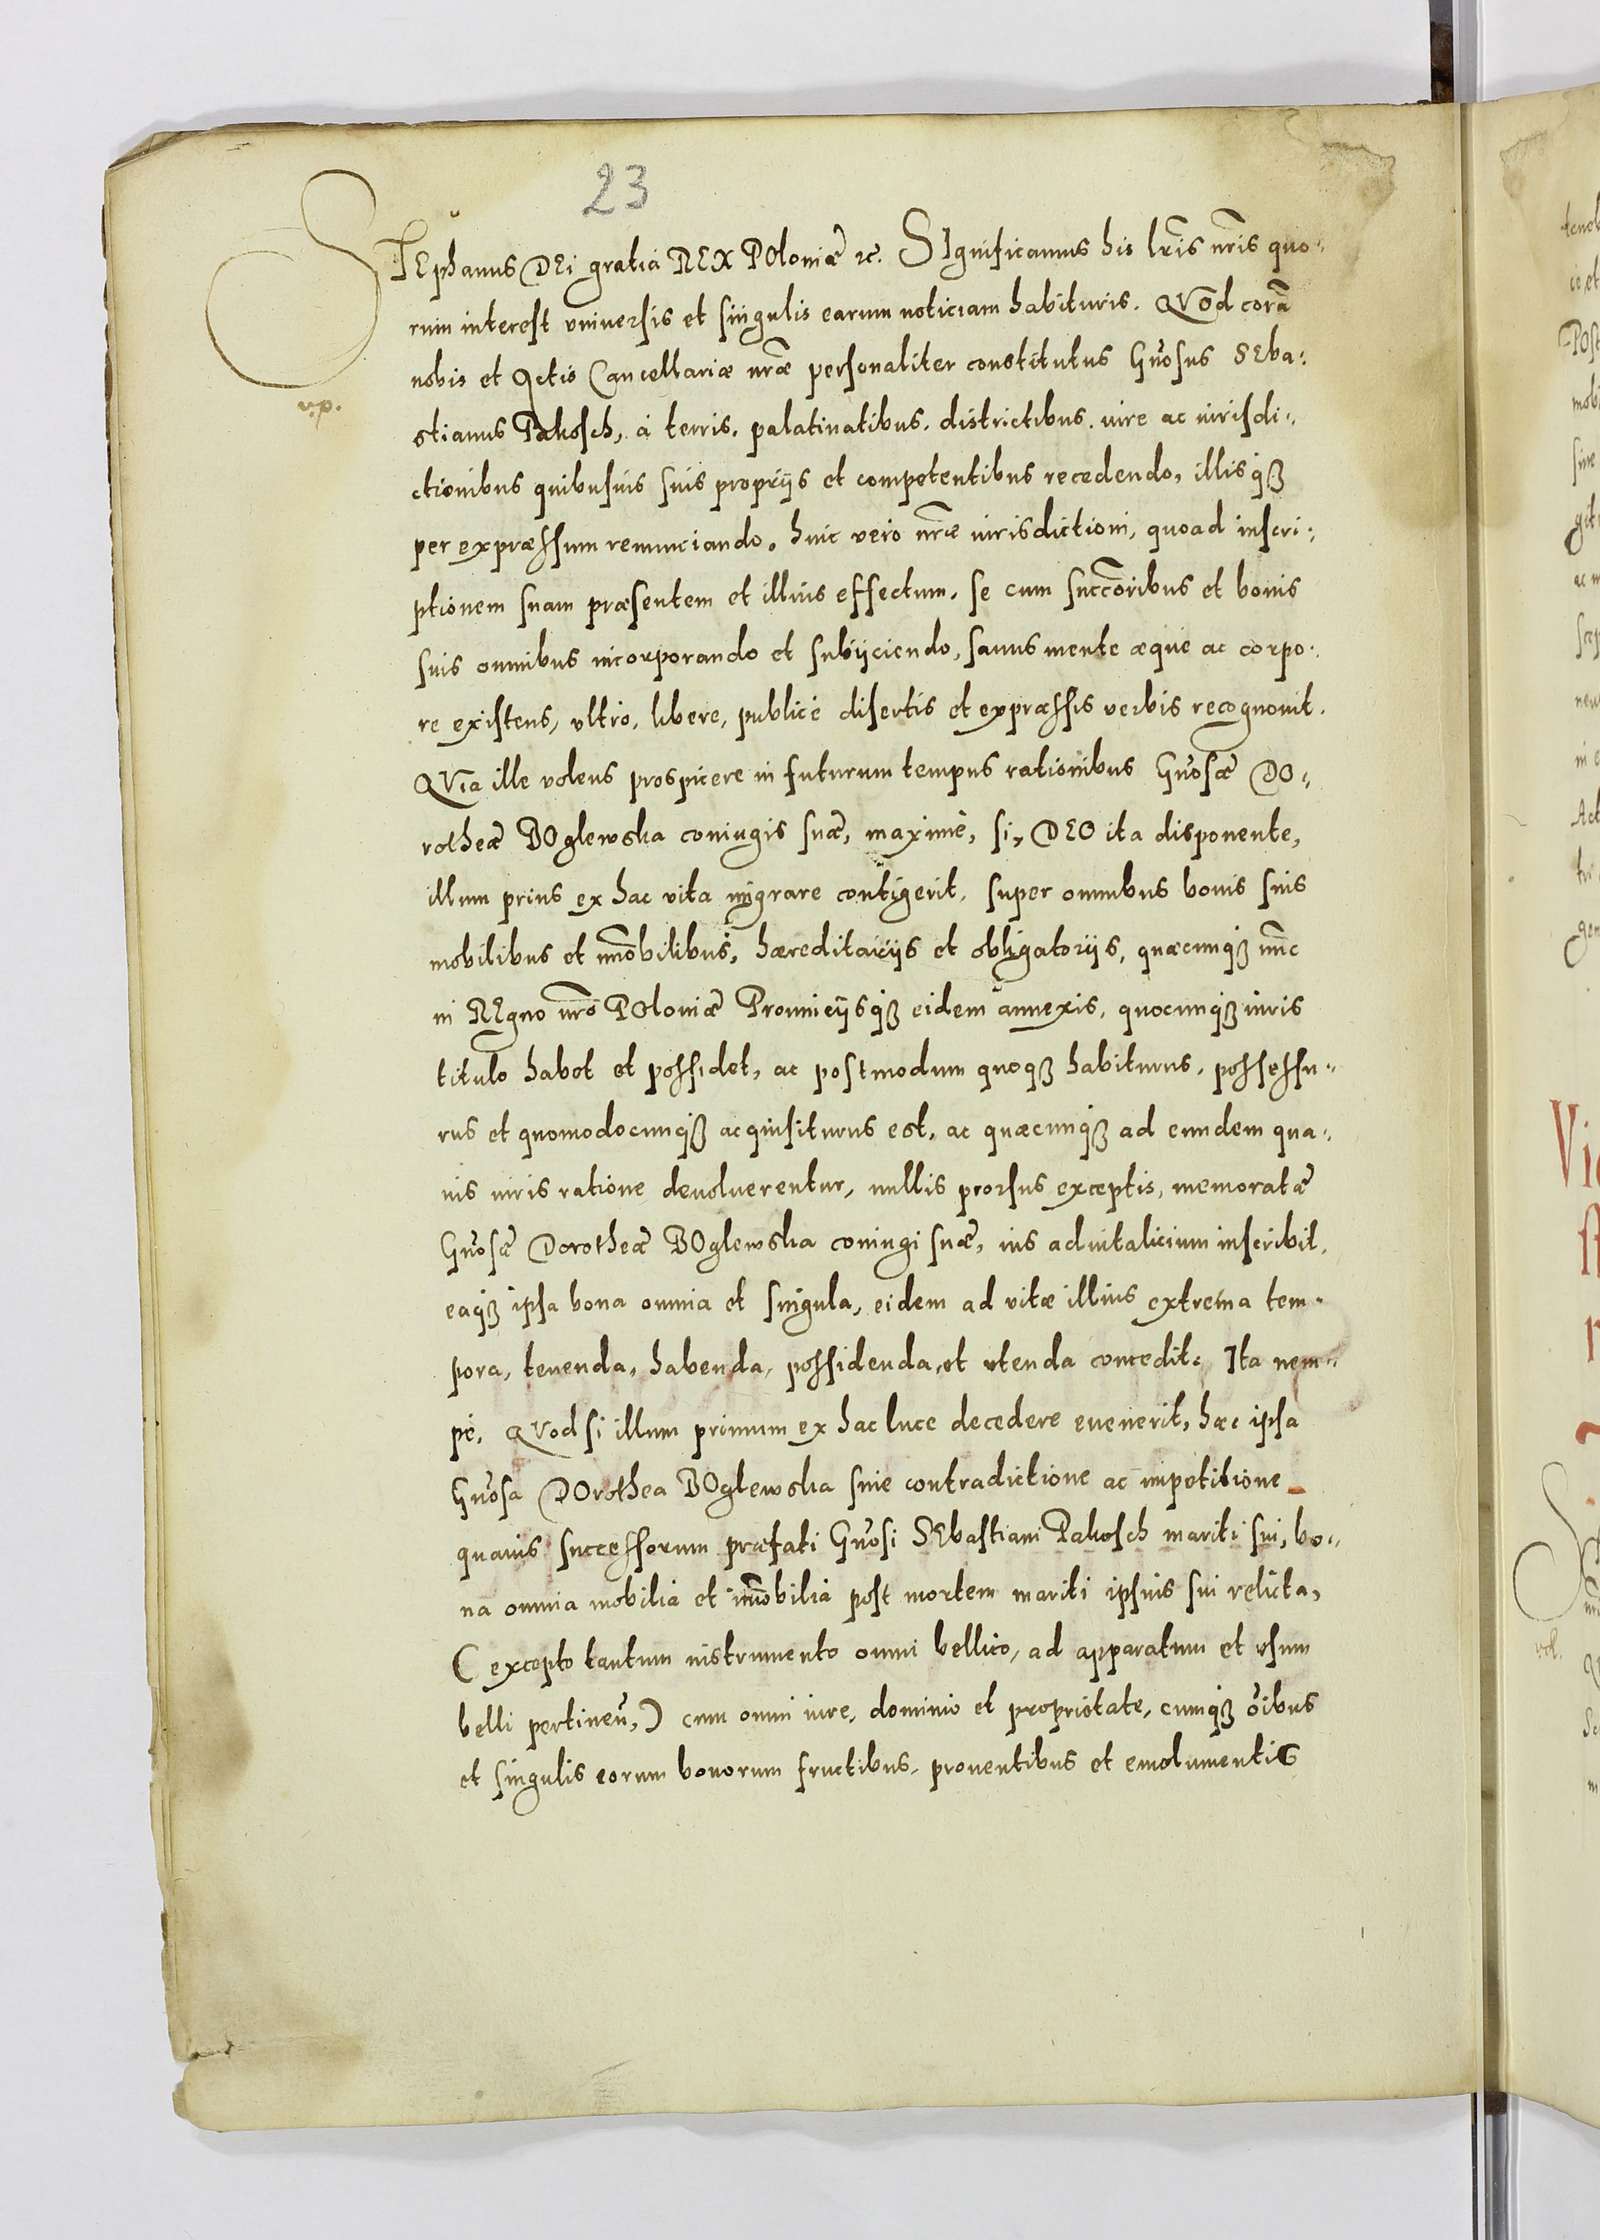 23
STEphanus DEi gratia REX POloniæ ꝛc. SIgnificamus his lr̃is nr̃is quo-
rum interest vniuersis et singulis earum noticiam habituris. QVod corã
nobis et Actis Cancellariæ nr̃æ personaliter constitutus Gn̄osus SEba-
stianus Pakosch, à terris, palatinatibus, districtibus, iure ac iurisdi-
ctionibus quibusuis suis proprijs et competentibus recedendo, illisqꝫ
per expræssum renunciando, huic vero nr̃æ iurisdictioni, quoad inscri-
ptionem suam præsentem et illius effectum, se cum succ̃oribus et bonis
suis omnibus incorporando et subijciendo, sanus mente æque ac corpo-
re existens, vltro, libere, publicè disertis et expræssis verbis recognouit.
QVia ille volens prospicere in futurum tempus rationibus Gn̄osæ DO-
rotheæ BOglewska coniugis suæ, maximè, si, DEO ita disponente,
illum prius ex hac vita migrare contigerit, super omnibus bonis suis
mobilibus et im̃obilibus, hæreditarijs et obligatorijs, quæcunqꝫ nunc
in REgno nr̃o POloniæ Prouincijsqꝫ eidem annexis, quocunqꝫ iuris
titulo habet et possidet, ac postmodum quoqꝫ habiturus, possessu-
rus et quomodocunqꝫ acquisiturus est, ac quæcunqꝫ ad eundem qua-
uis iuris ratione deuoluerentur, nullis prorsus exceptis, memoratæ
Gn̄osæ Dorotheæ BOglewska coniugi suæ, ius aduitalicium inscribit,
eaqꝫ ipsa bona omnia et singula, eidem ad vitæ illius extrema tem-
pora, tenenda, habenda, possidenda, et vtenda concedit. Ita nem-
pè, QVod si illum primum ex hac luce decedere euenerit, hæc ipsa
Gn̄osa DOrothea BOglewska sine contradictione ac impetitione
quauis successorum præfati Gn̄osi SEbastiani Pakosch mariti sui, bo-
na omnia mobilia et im̃obilia post mortem mariti ipsius sui relicta,
(excepto tantum instrumento omni bellico, ad apparatum et vsum
belli pertineñ,) cum omni iure, dominio et proprietate, cumqꝫ õibus
et singulis eorum bonorum fructibus, prouentibus et emolumentis